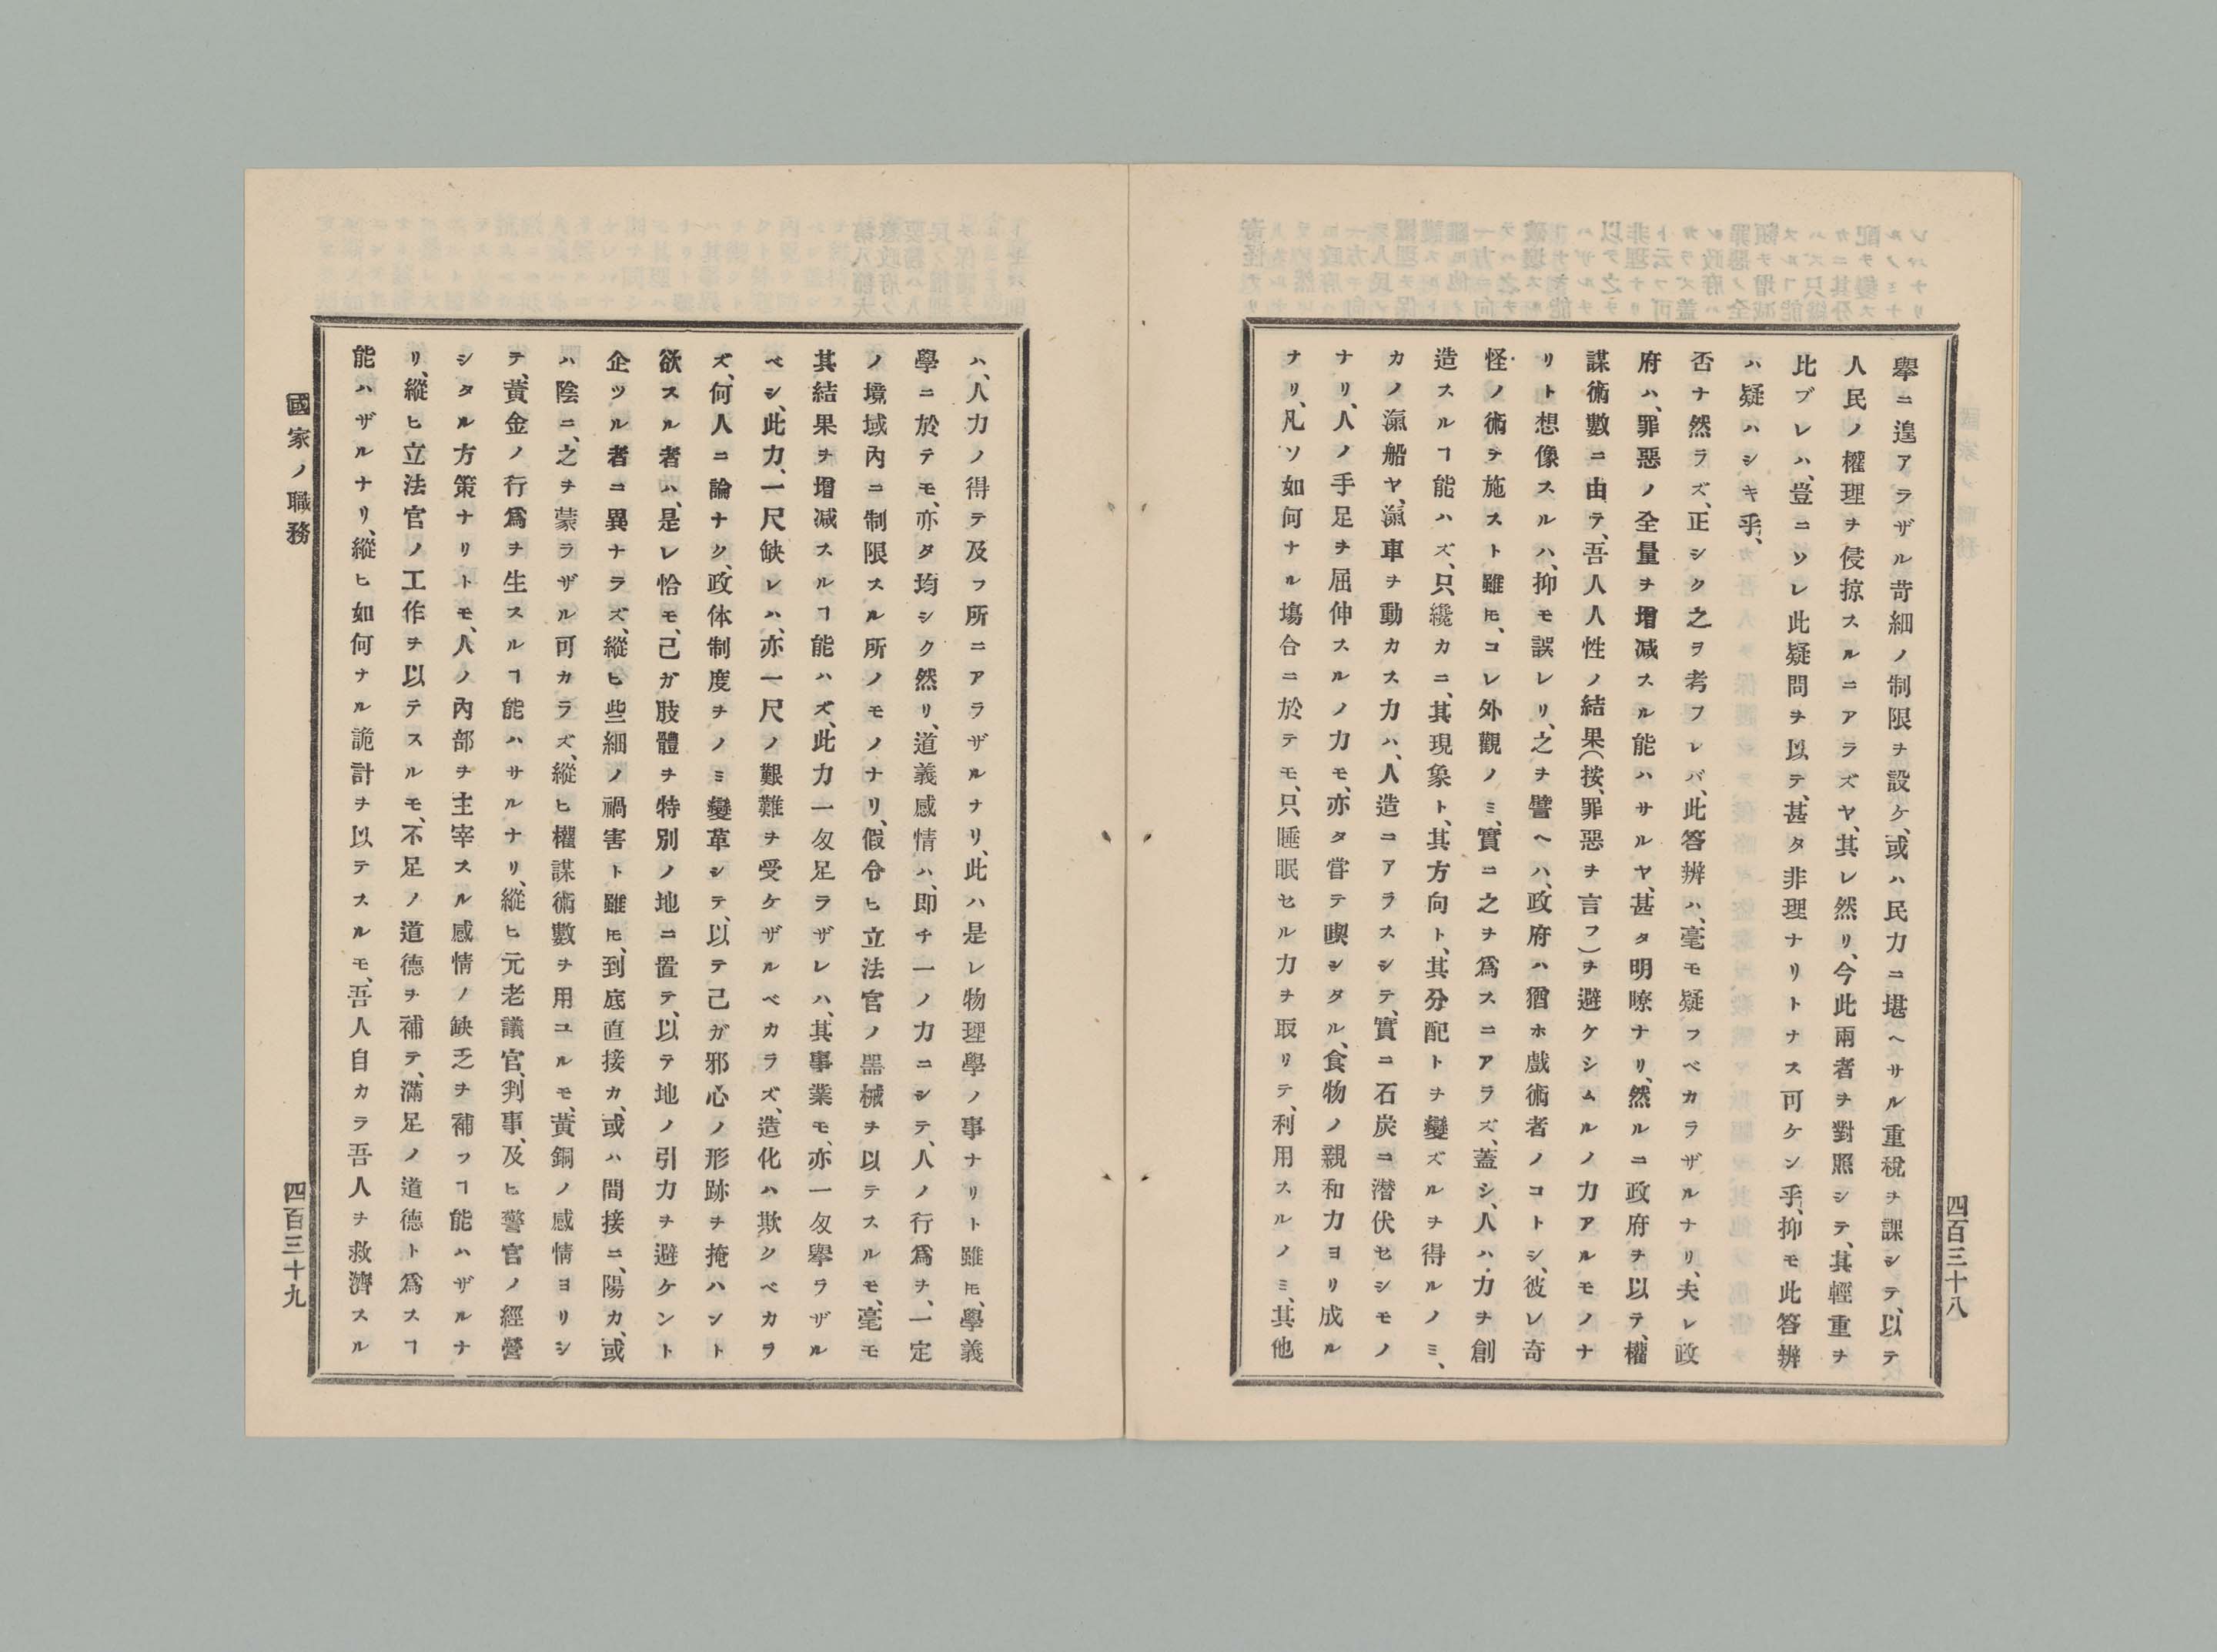 擧ニ遑アラザル苛細ノ制限ヲ設ケ、或ハ民力ニ堪ヘサル重稅ヲ課シテ、以テ
人民ノ權理ヲ侵掠スルニアラズヤ、其レ然リ、今此兩者ヲ對照シテ、其輕重ヲ
比ブレハ、豈ニソレ此疑問ヲ以テ、甚タ非理ナリトナス可ケン乎、抑モ此答辨
ハ疑ハシキ乎、
否ナ然ラズ、正シク之ヲ考フレバ、此答辨ハ、毫モ疑フベカラザルナリ、夫レ政
府ハ、罪惡ノ全量ヲ增减スル能ハサルヤ、甚タ明瞭ナリ、然ルニ政府ヲ以テ、權
謀術數ニ由テ、吾人人性ノ結果(按、罪惡ヲ言フ)ヲ避ケシムルノ力アルモノナ
リト想像スルハ、抑モ誤レリ、之ヲ譬ヘハ、政府ハ猶ホ戲術者ノコトシ、彼レ奇
怪ノ術ヲ施スト雖𪜈、コレ外觀ノミ、實ニ之ヲ爲スニアラズ、蓋シ、人ハ、力ヲ創
造スルヿ能ハズ、只纔カニ、其現象ト、其方向ト、其分配トヲ變ズルヲ得ルノミ、
カノ滊船ヤ、滊車ヲ動カス力ハ、人造ニアラスシテ、實ニ石炭ニ潜伏セシモノ
ナリ、人ノ手足ヲ屈伸スルノ力モ、亦タ甞テ喫シタル、食物ノ親和力ヨリ成ル
ナリ、凡ソ如何ナル塲合ニ於テモ、只睡眠セル力ヲ取リテ、利用スルノミ、其他
四百三十八
ハ、人力ノ得テ及フ所ニアラザルナリ、此ハ是レ物理學ノ事ナリト雖𪜈、學義
學ニ於テモ、亦タ均シク然リ、道義感情ハ、即チ一ノ力ニシテ、人ノ行爲ヲ、一定
ノ境域內ニ制限スル所ノモノナリ、假令ヒ立法官ノ噐械ヲ以テスルモ、毫モ
其結果ヲ增减スルヿ能ハズ、此力一匁足ラザレハ、其事業モ、亦一匁擧ラザル
ベシ、此力、一尺缺レハ、亦一尺ノ艱難ヲ受ケザルベカラズ、造化ハ欺クベカラ
ズ、何人ニ論ナク、政体制度ヲノミ變革シテ、以テ己ガ邪心ノ形跡ヲ掩ハント
欲スル者ハ、是レ恰モ、己ガ肢體ヲ特別ノ地ニ置テ、以テ地ノ引力ヲ避ケント
企ツル者ニ異ナラズ、縱ヒ些細ノ禍害ト雖𪜈、到底直接カ、或ハ間接ニ、陽カ、或
ハ陰ニ、之ヲ蒙ラザル可カラズ、縱ヒ權謀術數ヲ用ユルモ、黃銅ノ感情ヨリシ
テ、黃金ノ行爲ヲ生スルヿ能ハサルナリ、縱ヒ元老議官、判事、及ヒ警官ノ經營
シタル方策ナリトモ、人ノ內部ヲ主宰スル感情ノ缺乏ヲ補フヿ能ハザルナ
リ、縱ヒ立法官ノ工作ヲ以テスルモ、不足ノ道德ヲ補テ、滿足ノ道德ト爲スヿ
能ハザルナリ、縱ヒ如何ナル詭計ヲ以テスルモ、吾人自カラ吾人ヲ救濟スル
國家ノ職務
四百三十九